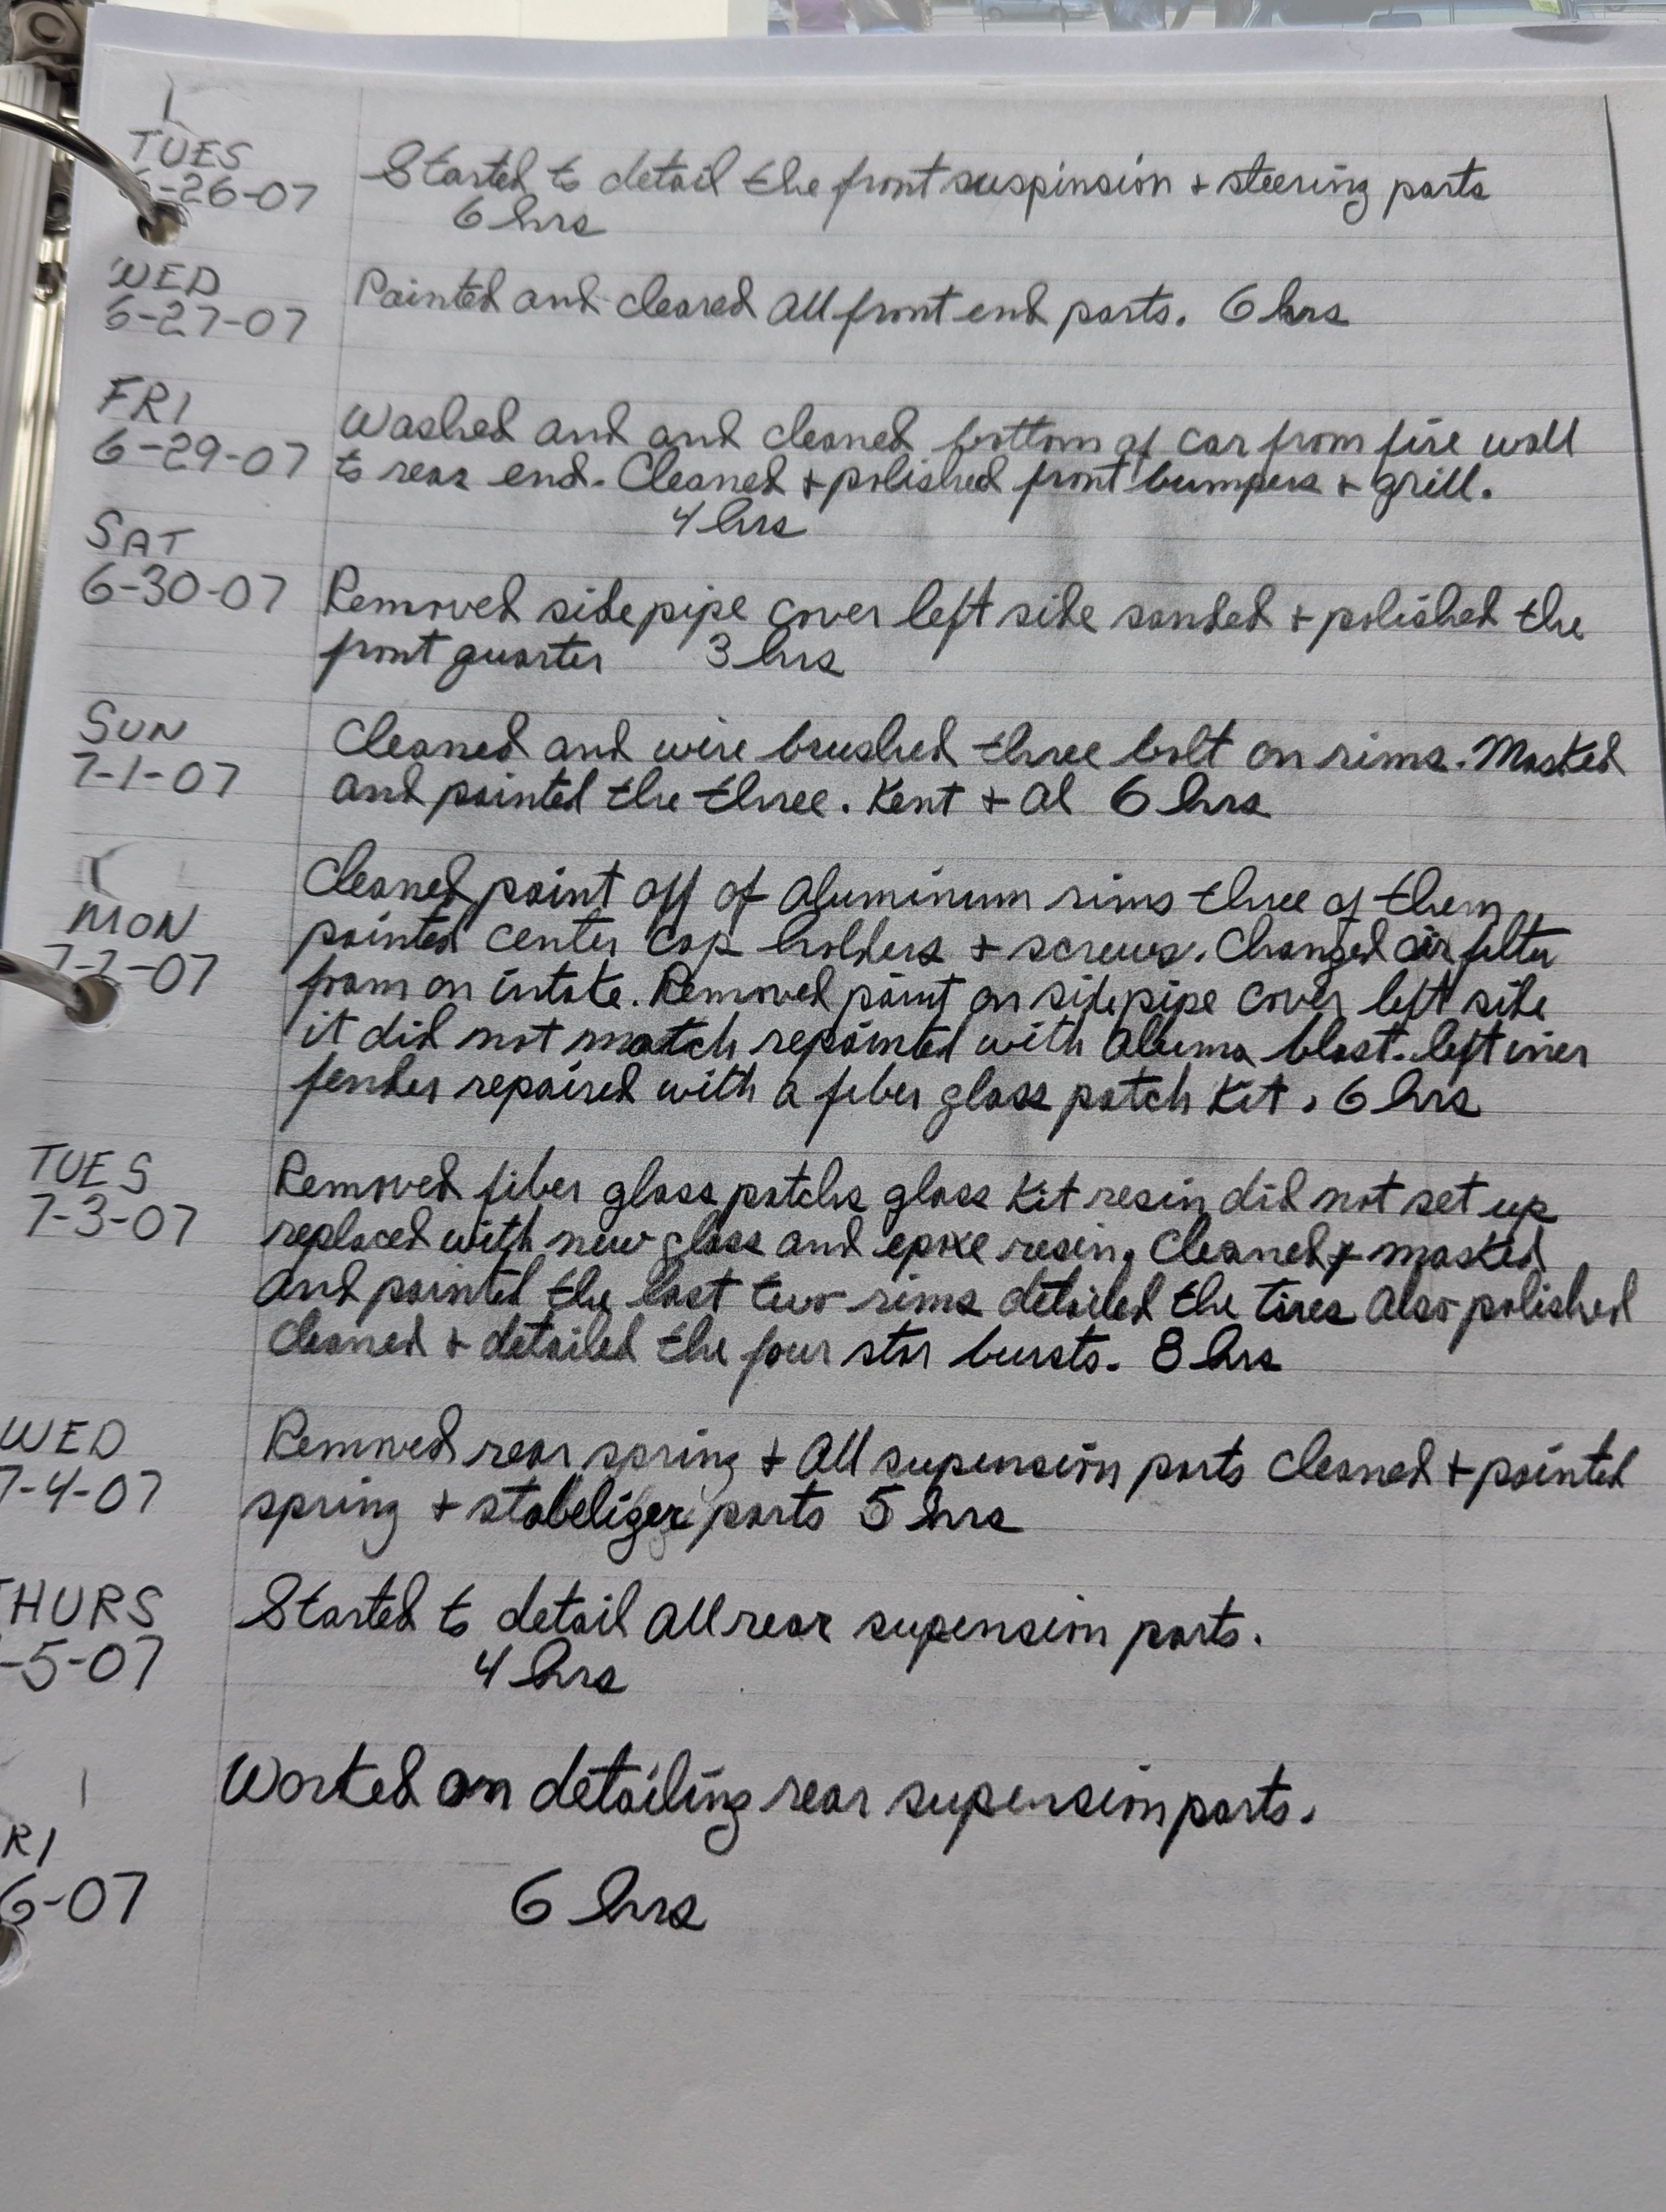 TUES
6-26-07
Started to detail the front suspinsion + steering parts
6 hrs
WED
6-27-07
Painted and cleared all front end parts. 6 hrs
FRI
6-29-07
Washed and and cleaned bottom of car from fire wall
to rear end. Cleaned + polished front bumpers + grill.
4 hrs
SAT
6-30-07
Removed side pipe cover left side sanded + polished the
front quarter 3 hrs
SUN
7-1-07
Cleaned and wire brushed three bolt on rims. Masked
and painted the three. Kent + Al 6 hrs
MON
7-2-07
Cleaned paint off of aluminum rims three of them
painted center cap holders + screws. Changed air filter
foam on intake. Removed paint on side pipe cover left side
it did not match repainted with aluma blast. left iner
fender repaired with a fiber glass patch kit. 6 hrs
TUES
7-3-07
Removed fiber glass patchs glass kit resin did not set up
replaced with new glass and epoxe resin. Cleaned + masked
and painted the last two rims detailed the tires also polished
cleaned + detailed the four star bursts. 8 hrs
WED
7-4-07
Removed rear spring + all supension parts cleaned + painted
spring + stabelizer parts 5 hrs
THURS
-5-07
Started to detail all rear supension parts.
4 hrs
RI
6-07
Worked on detailing rear supension parts.
6 hrs